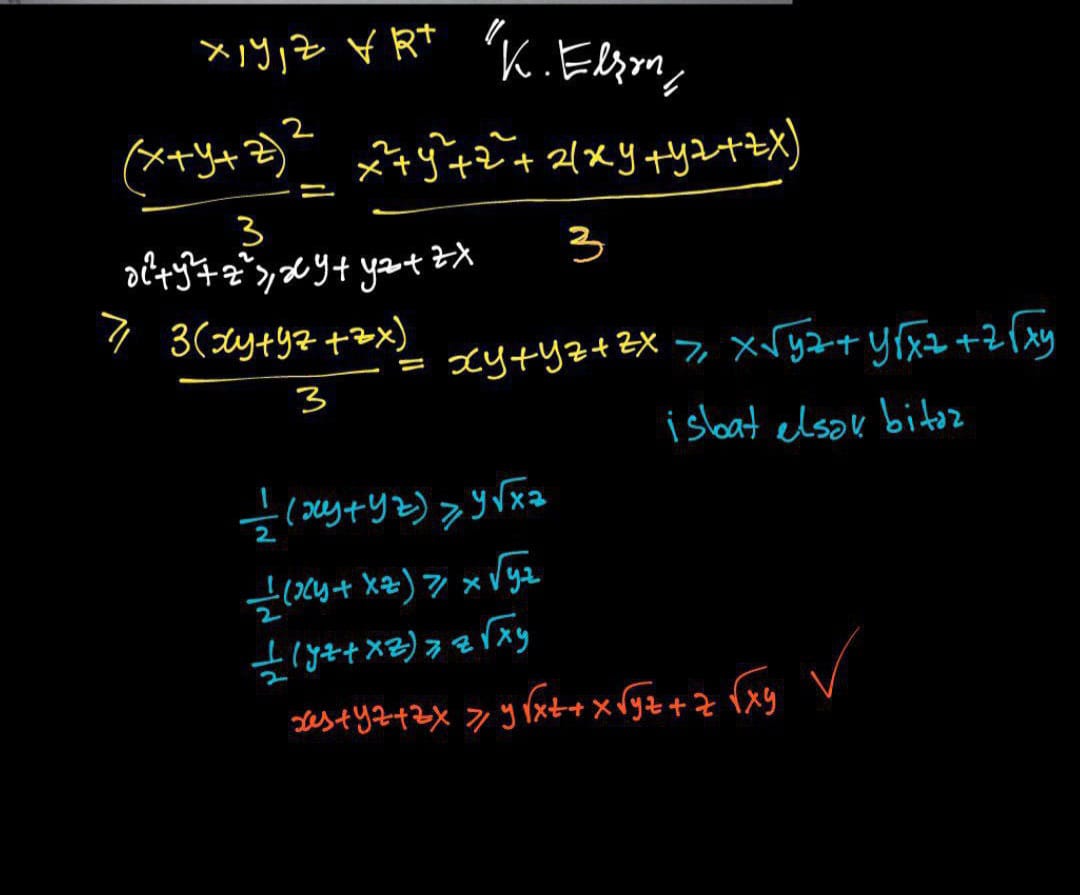 x,y,z ∀ R⁺ "K.Elşən"
(x+y+z)²/3 = x²+y²+z²+2(xy+yz+zx)/3
x²+y²+z² ⩾ xy+yz+zx
⩾ 3(xy+yz+zx)/3 = xy+yz+zx ⩾ x√yz + y√xz + z√xy
isbat elsək bitər
1/2(xy+yz) ⩾ y√xz
1/2(xy+xz) ⩾ x√yz
1/2(yz+xz) ⩾ z√xy
xy+yz+zx ⩾ y√xz + x√yz + z√xy ✓